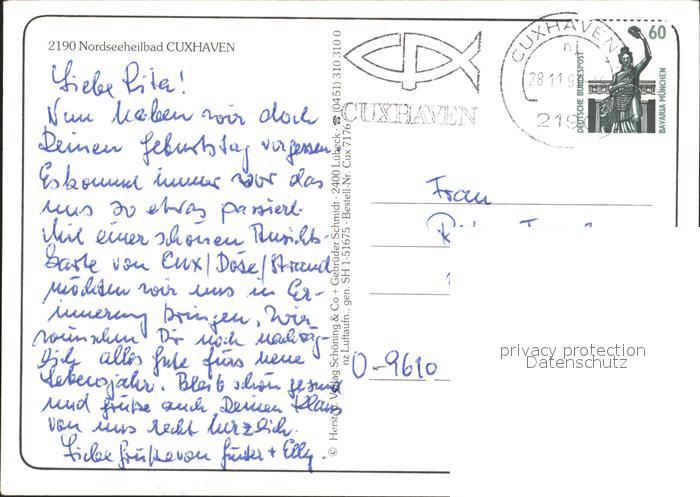 2190 Nordseeheilbad CUXHAVEN
Liebe Rita!
Nun haben wir doch
Deinen Geburtstag vergessen.
Es kommt immer vor das
uns so etwas passiert.
Mit einer schönen Ansichts-
karte von Cux/Döse/Strand
möchten wir uns in Er-
innerung bringen. Wir
wünschen Dir noch nachträg-
lich alles Gute fürs neue
Lebensjahr. Bleib schön gesund
und grüße auch Deinen Klaus
von uns recht herzlich.
Liebe Grüße von Günter + Elly.
© Herst. u. Verlag Schöning & Co + Gebrüder Schmidt · 2400 Lübeck · ☎ (0451) 310 310 0
nz Luftaufn., gen. SH 1-51675 · Bestell-Nr. Cux 7176
CUXHAVEN
CUXHAVEN
28.11.9
219
60
DEUTSCHE BUNDESPOST
BAVARIA MÜNCHEN
Frau
O-9610
privacy protection
Datenschutz